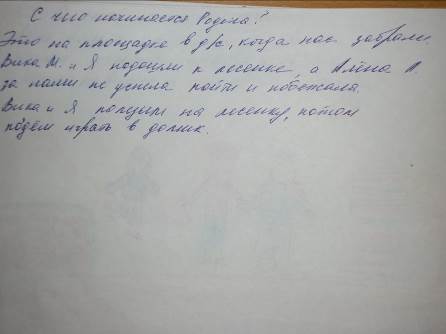 С чего начинается Родина?
Это на площадке в д/с, когда нас забрали.
Вика М. и Я подошли к лесенке, а Алёна П.
за нами не успела пойти и побежала.
Вика и Я ползём на лесенку, потом
пойдём играть в домик.